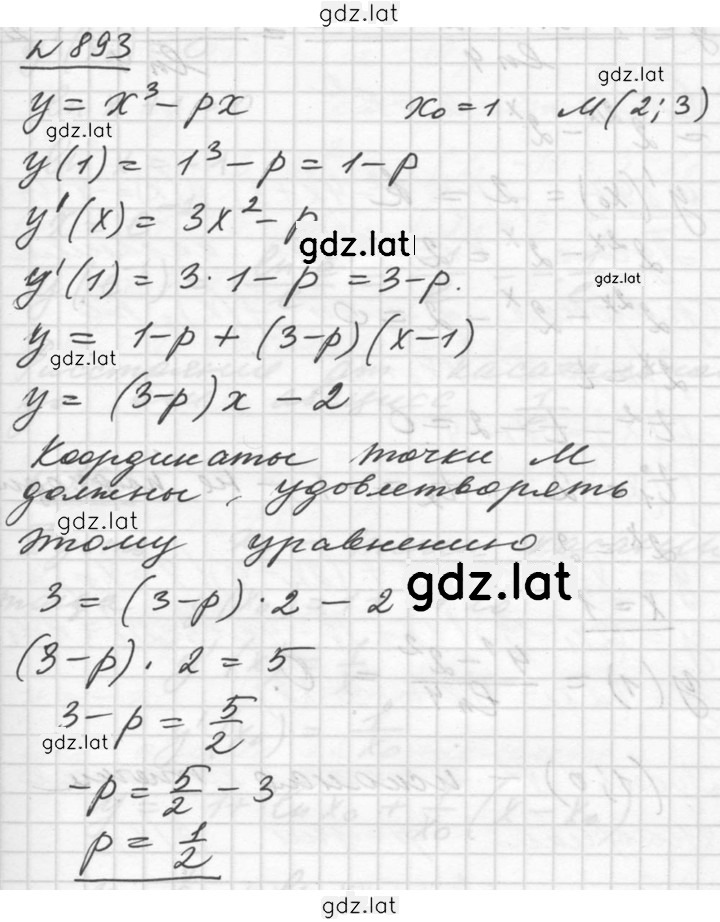 gdz.lat
№ 893
gdz.lat
y = x³ - px x₀ = 1 M(2; 3)
gdz.lat
y(1) = 1³ - p = 1 - p
y'(x) = 3x² - p
gdz.lat
y'(1) = 3·1 - p = 3 - p.
gdz.lat
y = 1 - p + (3 - p)(x - 1)
gdz.lat
y = (3 - p)x - 2
Координаты точки M
должны удовлетворять
gdz.lat
этому уравнению
gdz.lat
3 = (3 - p)·2 - 2
(3 - p)·2 = 5
3 - p = 5/2
gdz.lat
-p = 5/2 - 3
p = 1/2
gdz.lat